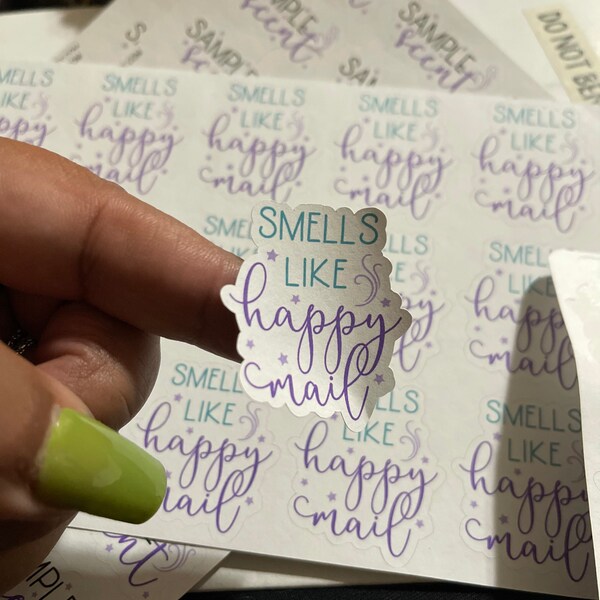 SAMPLE
scent
SAMPLE
scent
SAMPLE
DO NOT BEN
SMELLS
LIKE
happy
mail
SMELLS
LIKE
happy
mail
SMELLS
LIKE
happy
mail
SMELLS
LIKE
happy
mail
SMELLS
LIKE
happy
mail
SMELLS
LIKE
happy
mail
SMELLS
LIKE
happy
mail
SMELLS
LIKE
happy
mail
SMELLS
LIKE
happy
mail